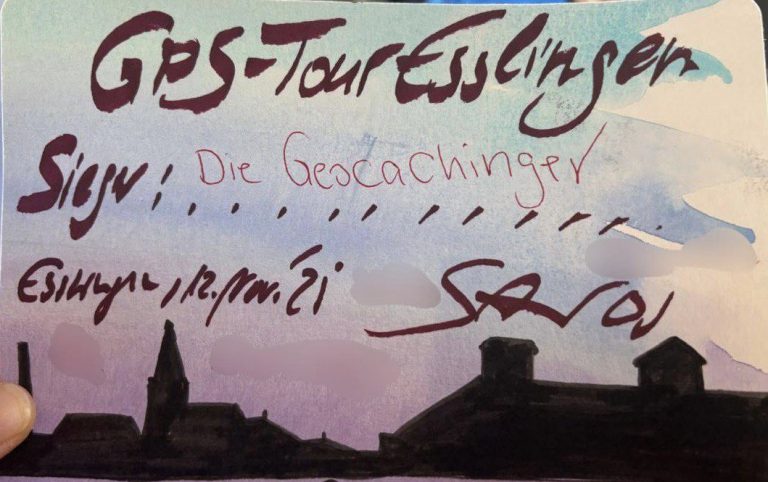 GPS-Tour Esslingen
Sieger: Die Geocachinger
Esslingen, 12. Nov. '21